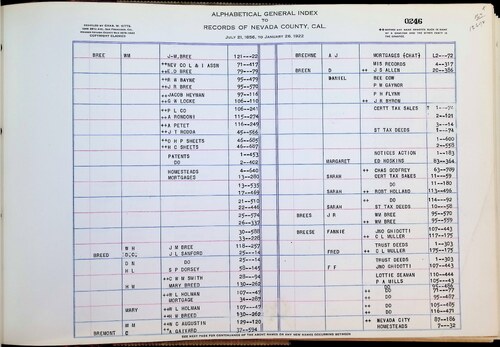 ALPHABETICAL GENERAL INDEX
TO
RECORDS OF NEVADA COUNTY, CAL.
JULY 21, 1856, TO JANUARY 29, 1922
0246
COPYRIGHT CLAIMED
BREE WM J-M, BREE 121---22
++NEV CO L & I ASSN 71---417
++E.D BREE 79---79
++R W BAYNE 95---479
++J R BREE 95---570
++JACOB HEYMAN 97---114
++G W LOCKE 106--110
++P L CO 106--241
++A RONDONI 115--274
++A PETET 116--249
++J T RODDA 45---566
++O H P SHEETS 46---685
++H C SHEETS 46---687
PATENTS 1---453
DO 2---402
HOMESTEADS 4---640
MORTGAGES 13---280
13---535
17---669
21---510
22---446
25---574
26---333
30---588
33---228
N H J M BREE 118--257
BREED D.C. J L SANFORD 25---14
D N DO 25---14
H L S P DORSEY 58---145
++C W M SMITH 28---94
H M MARY BREED 130--262
++W L HOLMAN 107--447
MORTGAGE 34---289
MARY ++W L HOLMAN 107--447
++H W BREED 130--262
M M ++M C AUGUSTIN 129--120
BREMONT C ++A GAIVARD 37---594
BREEHNE A J MORTGAGES (CHAT) L2---72
MIS RECORDS 4---317
BREEN D ++ J S ALLEN 20---386
DANIEL BEE COW
P W GAYNOR
P H FLYNN
++ J H BYRON
CERTT TAX SALES
2---125
3---14
ST TAX DEEDS 1---74
1---600
2---558
NOTICES ACTION 1---183
MARGARET ED HOSKINS 83---364
++ CHAS GODFREY 63---709
SARAH CERT TAX SALES 11---59
DO 11---180
SARAH ++ ROBT HOLLAND 113--496
++ DO 114---92
SARAH ST TAX DEEDS 5---58
BREES J R WM BREE 95---570
WM BREE 95---559
BREESE FANNIE JNO GHIDOTTI 107--443
++ C L MULLER 117--175
TRUST DEEDS 1---303
FRED ++ C L MULLER 175--175
TRUST DEEDS 1---303
F F JNO GHIDOTTI 107--443
LOTTIE SEAMAN 110--444
++ P A MILLS 105--485
++ DO 71---77
++ DO 95---487
++ DO 105--485
++ DO 116--471
++ NEVADA CITY 87---186
HOMESTEADS 7---32